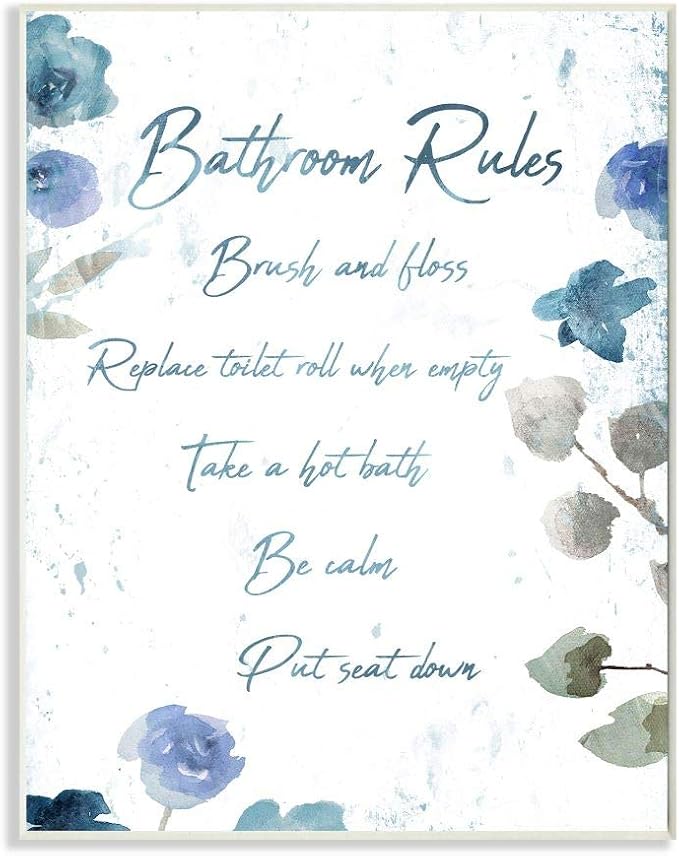 Bathroom Rules
Brush and floss
Replace toilet roll when empty
Take a hot bath
Be calm
Put seat down